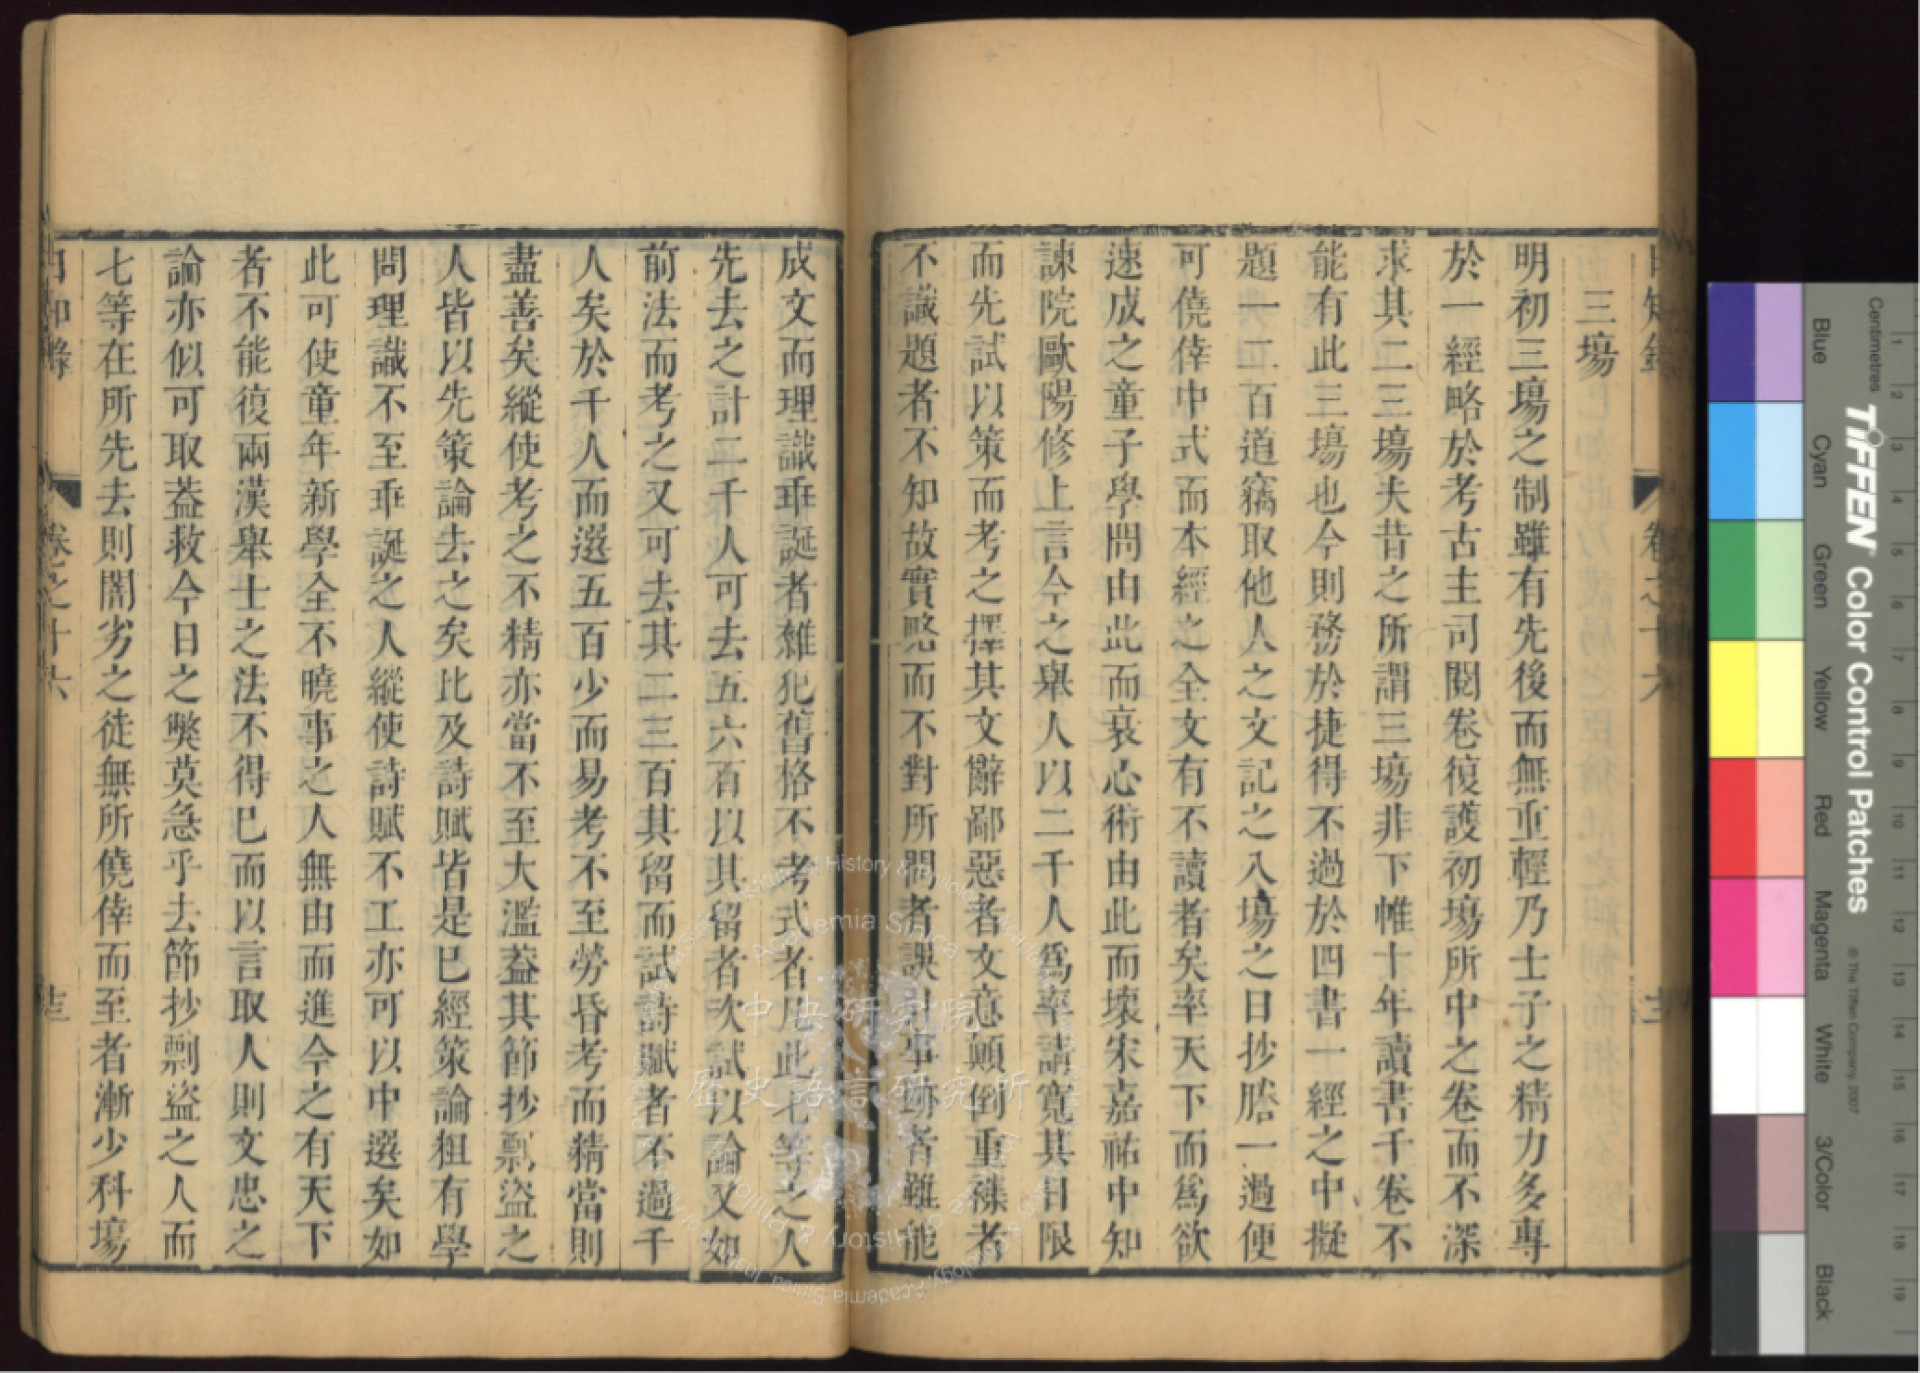 日知錄 卷之十六
三塲
明初三塲之制雖有先後而無重輕乃士子之精力多專
於一經略於考古主司閱卷復護初塲所中之卷而不深
求其二三塲夫昔之所謂三塲非下帷十年讀書千卷不
能有此三塲也今則務於捷得不過於四書一經之中擬
題一二百道竊取他人之文記之入塲之日抄謄一過便
可僥倖中式而本經之全文有不讀者矣率天下而爲欲
速成之童子學問由此而衰心術由此而壞宋嘉祐中知
諫院歐陽修上言今之舉人以二千人爲率請寬其日限
而先試以策而考之擇其文辭鄙惡者文意顚倒重襍者
不識題者不知故實略而不對所問者誤引事跡者雖能
成文而理識乖誕者雜犯舊格不考式者凡此七等之人
先去之計二千人可去五六百以其留者次試以論又如
前法而考之又可去其二三百其留而試詩賦者不過千
人矣於千人而選五百少而易考不至勞昏考而精當則
盡善矣縱使考之不精亦當不至大濫葢其節抄剽盜之
人皆以先策論去之矣比及詩賦皆是已經策論粗有學
問理識不至乖誕之人縱使詩賦不工亦可以中選矣如
此可使童年新學全不曉事之人無由而進今之有天下
者不能復兩漢舉士之法不得已而以言取人則文忠之
論亦似可取葢救今日之獘莫急乎去節抄剽盜之人而
七等在所先去則闇劣之徒無所僥倖而至者漸少科塲
日知錄 卷之十六
中央研究院
歷史語言研究所
Academia Sinica
Centimetres
TIFFEN Color Control Patches
© The Tiffen Company, 2007
Blue
Cyan
Green
Yellow
Red
Magenta
White
3/Color
Black
1
2
3
4
5
6
7
8
9
10
11
12
13
14
15
16
17
18
19